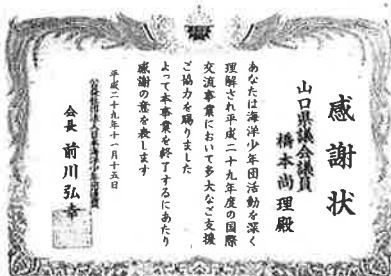 感謝状
山口県議会議員
橋本尚理殿
あなたは海洋少年団活動を深く
理解され平成二十九年度の国際
交流事業において多大なご支援
ご協力を賜りました
よって本事業を終了するにあたり
感謝の意を表します
平成二十九年十一月十五日
公益社団法人日本海洋少年団連盟
会長 前川弘幸